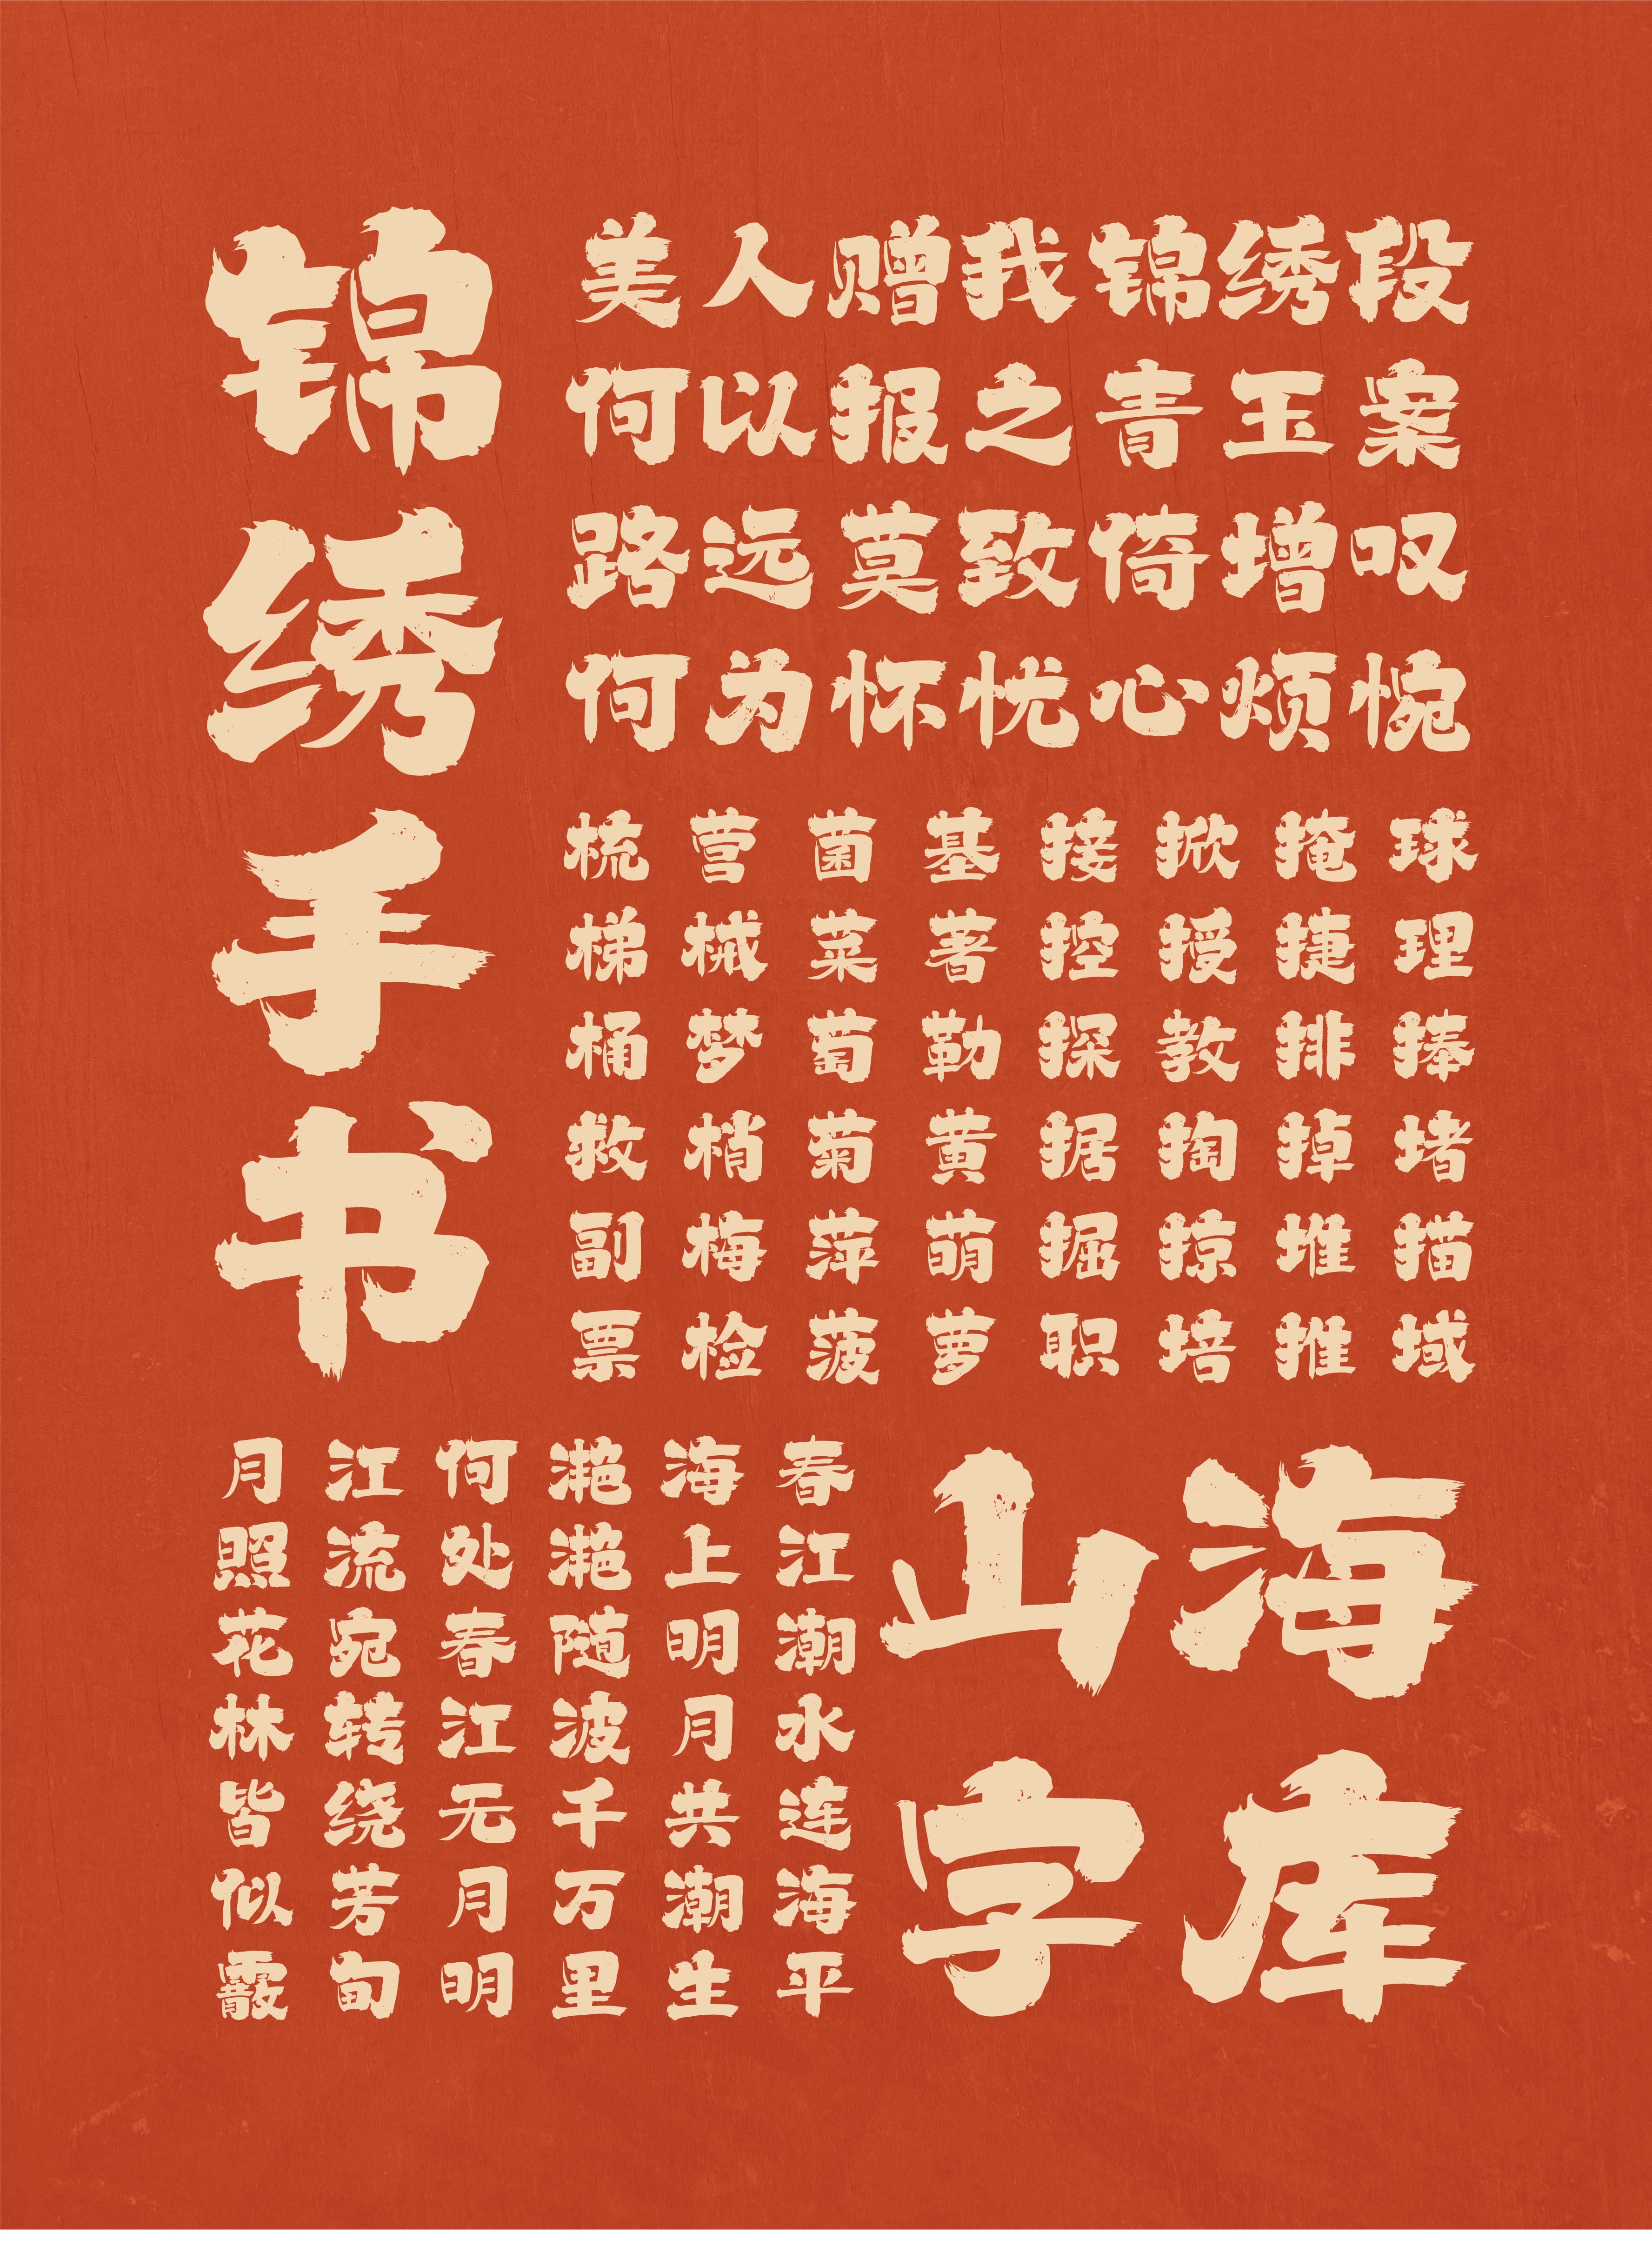 锦绣手书
美人赠我锦绣段
何以报之青玉案
路远莫致倚增叹
何为怀忧心烦惋
球理捧堵描域
掩捷排掉堆推
掀授教掏掠培
接控探据掘职
基著勒黄萌萝
菌菜萄菊萍菠
营械梦梢梅检
梳梯桶救副票
山海
字库
春江潮水连海平
海上明月共潮生
滟滟随波千万里
何处春江无月明
江流宛转绕芳甸
月照花林皆似霰